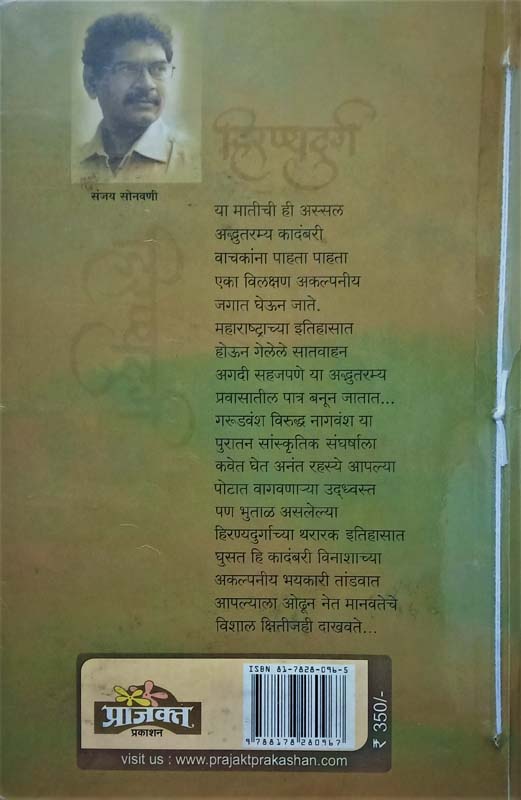 संजय सोनवणी
हिरण्यदुर्ग
हिरण्यदुर्ग
या मातीची ही अस्सल
अद्भुतरम्य कादंबरी
वाचकांना पाहता पाहता
एका विलक्षण अकल्पनीय
जगात घेऊन जाते.
महाराष्ट्राच्या इतिहासात
होऊन गेलेले सातवाहन
अगदी सहजपणे या अद्भुतरम्य
प्रवासातील पात्र बनून जातात...
गरूडवंश विरुद्ध नागवंश या
पुरातन सांस्कृतिक संघर्षाला
कवेत घेत अनंत रहस्ये आपल्या
पोटात वागवणाऱ्या उद्ध्वस्त
पण भुताळ असलेल्या
हिरण्यदुर्गाच्या थरारक इतिहासात
घुसत हि कादंबरी विनाशाच्या
अकल्पनीय भयकारी तांडवात
आपल्याला ओढून नेत मानवतेचे
विशाल क्षितीजही दाखवते...
प्राजक्त
प्रकाशन
ISBN 81-7828-096-5
9788178280967
₹ 350/-
visit us : www.prajaktprakashan.com